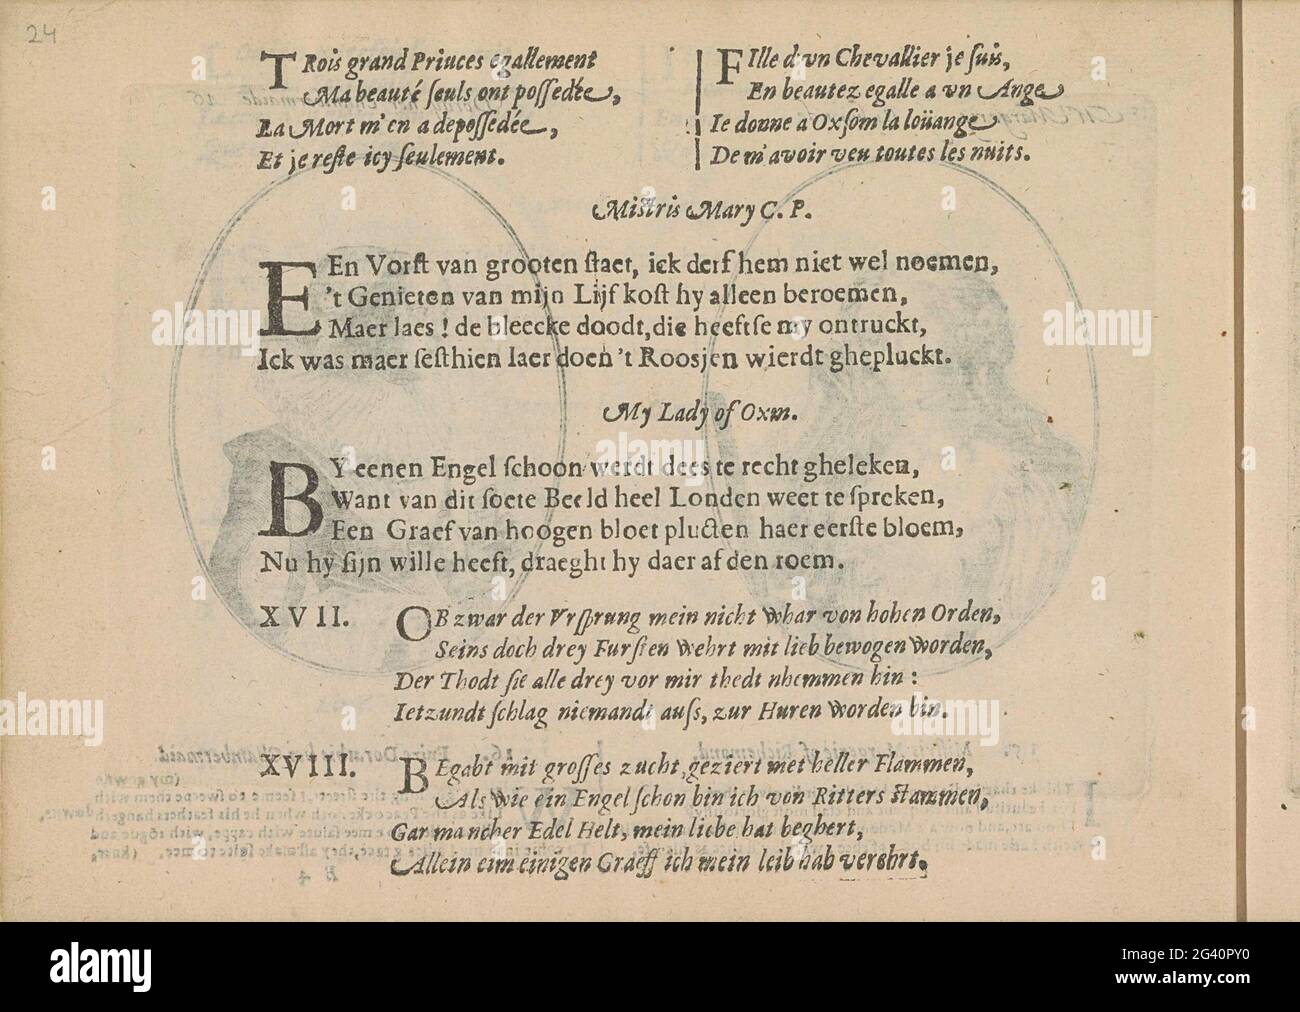 24
TRois grand Princes egallement
Ma beauté ſeuls ont poſſedée,
La Mort m'en a depoſſedée,
Et je reſte icy ſeulement.
FIlle d'vn Chevallier je ſuis,
En beautez egalle a vn Ange
Ie donne a Oxſom la loüange
De m'avoir veu toutes les nuits.
Miſtris Mary C. P.
EEn Vorſt van grooten ſtaet, ick derf hem niet wel noemen,
't Genieten van mijn Lijf koſt hy alleen beroemen,
Maer laes! de bleecke doodt, die heeftſe my ontruckt,
Ick was maer ſeſthien laer doen 't Roosjen wierdt ghepluckt.
My Lady of Oxm.
BY eenen Engel ſchoon werdt dees te recht gheleken,
Want van dit ſoete Beeld heel Londen weet te ſpreken,
Een Graef van hoogen bloet pluckten haer eerſte bloem,
Nu hy ſijn wille heeft, draeght hy daer af den roem.
XVII. OB zwar der Vrſprung mein nicht whar von hohen Orden,
Seins doch drey Furſten wehrt mit lieb bewogen worden,
Der Thodt ſie alle drey vor mir thedt nhemmen hin:
Ietzundt ſchlag niemandt auſs, zur Huren worden bin.
XVIII. BEgabt mit groſſes zucht, geziert met heller Flammen,
Als wie ein Engel ſchon bin ich von Ritters ſtammen,
Gar mancher Edel Helt, mein liebe hat beghert,
Allein eim einigen Graeff ich mein leib hab verehrt.
alamy
alamy
Image ID: 2G40PY0
www.alamy.com